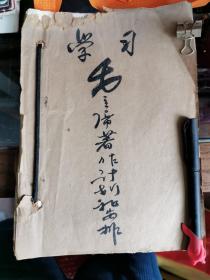 学习
毛主席著作计划和安排